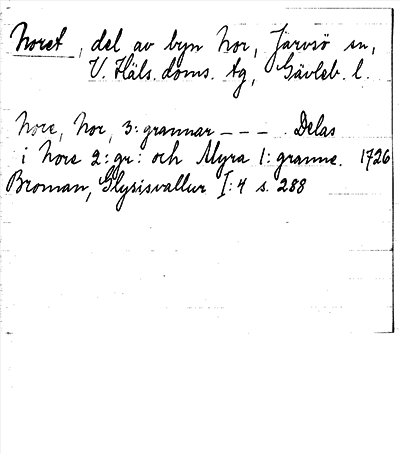 Noret, del av byn Nor, Järvsö sn,
V. Häls. doms. tg, Gävleb. l.
Nore, Nor, 3: grannar - - - Delas
i Nore 2: gr: och Myra 1: granne. 1726
Broman, Glysisvallur I: 4 s. 288